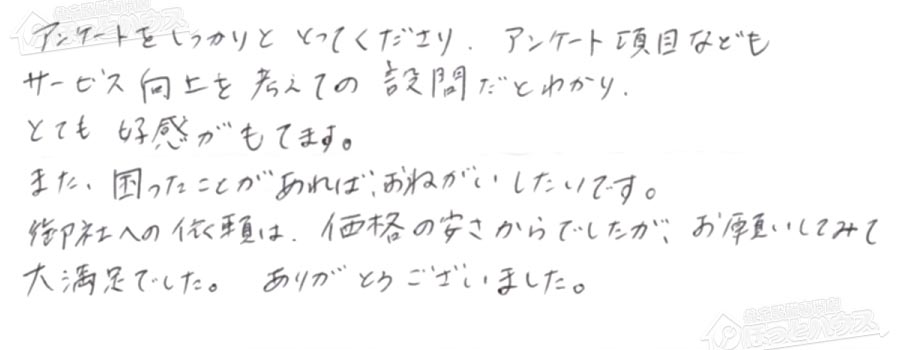 アンケートをしっかりと とってくださり、アンケート項目なども
サービス向上を考えての設問だとわかり、
とても好感がもてます。
また、困ったことがあれば、おねがいしたいです。
御社への依頼は、価格の安さからでしたが、お願いしてみて
大満足でした。 ありがとうございました。
ほっとハウス